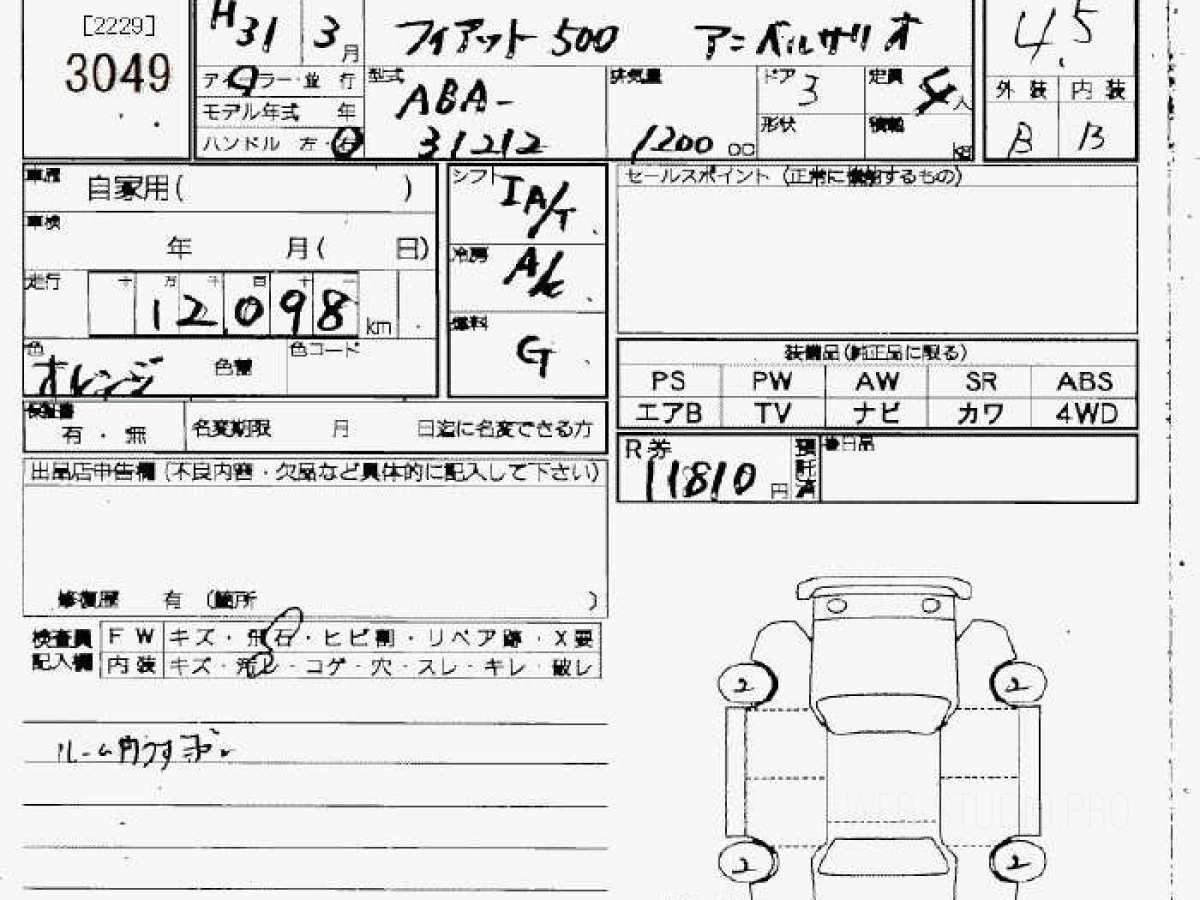 [2229]
3049
H31 3月
フィアット 500 アニベルサリオ
4.5
ディーラー・並行
モデル年式 年
ハンドル 左・右
型式
ABA-
31212
排気量
1200 cc
ドア
3
形状
定員
4人
積載
kg
外装 内装
B B
車歴
自家用( )
車検
年 月( 日)
走行
十 万 千 百 十 一
12,098 km
色
オレンジ
色替
色コード
シフト
IA/T
冷房
A/C
燃料
G
セールスポイント (正常に機能するもの)
装備品(純正品に限る)
PS PW AW SR ABS
エアB TV ナビ カワ 4WD
保証書
有・無
名変期限 月 日迄に名変できる方
R券
11810 円
預託済
後日品
出品店申告欄(不良内容・欠品など具体的に記入して下さい)
修復歴 有 (箇所 )
検査員
記入欄
FW キズ・飛石・ヒビ割・リペア跡・X要
内装 キズ・汚レ・コゲ・穴・スレ・キレ・破レ
2 2
ルーム内うすヨゴレ
WEB STUDIO PRO
2 2